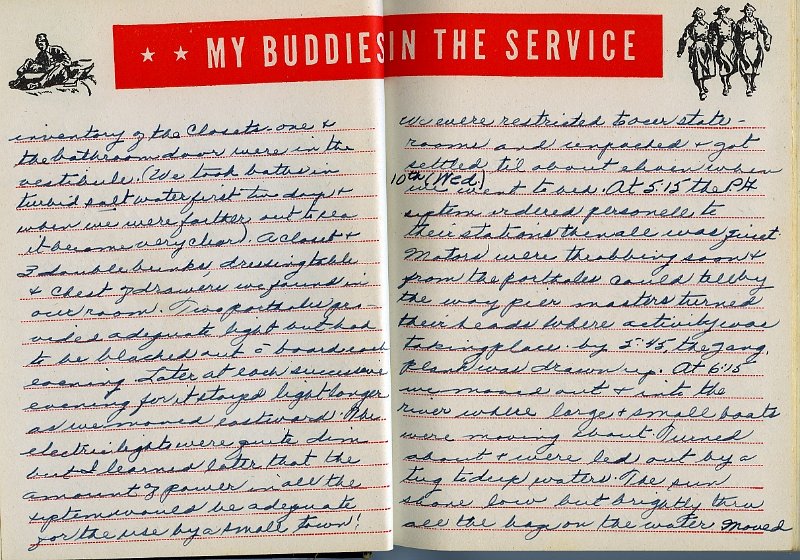 ★ ★ MY BUDDIES IN THE SERVICE
inventory of the closets - one &
the bathroom door were in the
vestibule. (We took baths in
turbid salt water first two days &
when we were farther out to sea
it became very clear). A closet &
3 double bunks, dressing table
& chest of drawers we found in
our room. Two portholes pro-
vided adequate light but had
to be blacked out c̄ boards each
evening. Later at each successive
evening for it stayed light longer
as we moved eastward. The
electric lights were quite dim
but I learned later that the
amount of power in all the
system would be adequate
for the use by a small town!
We were restricted to our state-
rooms and unpacked & got
settled til about eleven when
10th (Wed.)
we went to bed. At 5:15 the PA
system ordered personele to
their stations then all was quiet
Motors were throbbing soon &
from the portholes could tell by
the way pier masters turned
their heads where activity was
taking place. by 5:45, the gang
plank was drawn up. At 6:15
we moved out & into the
river where large & small boats
were moving about. Turned
about & were led out by a
tug to deep waters. The sun
shone low but brightly thru
all the haze on the water moved